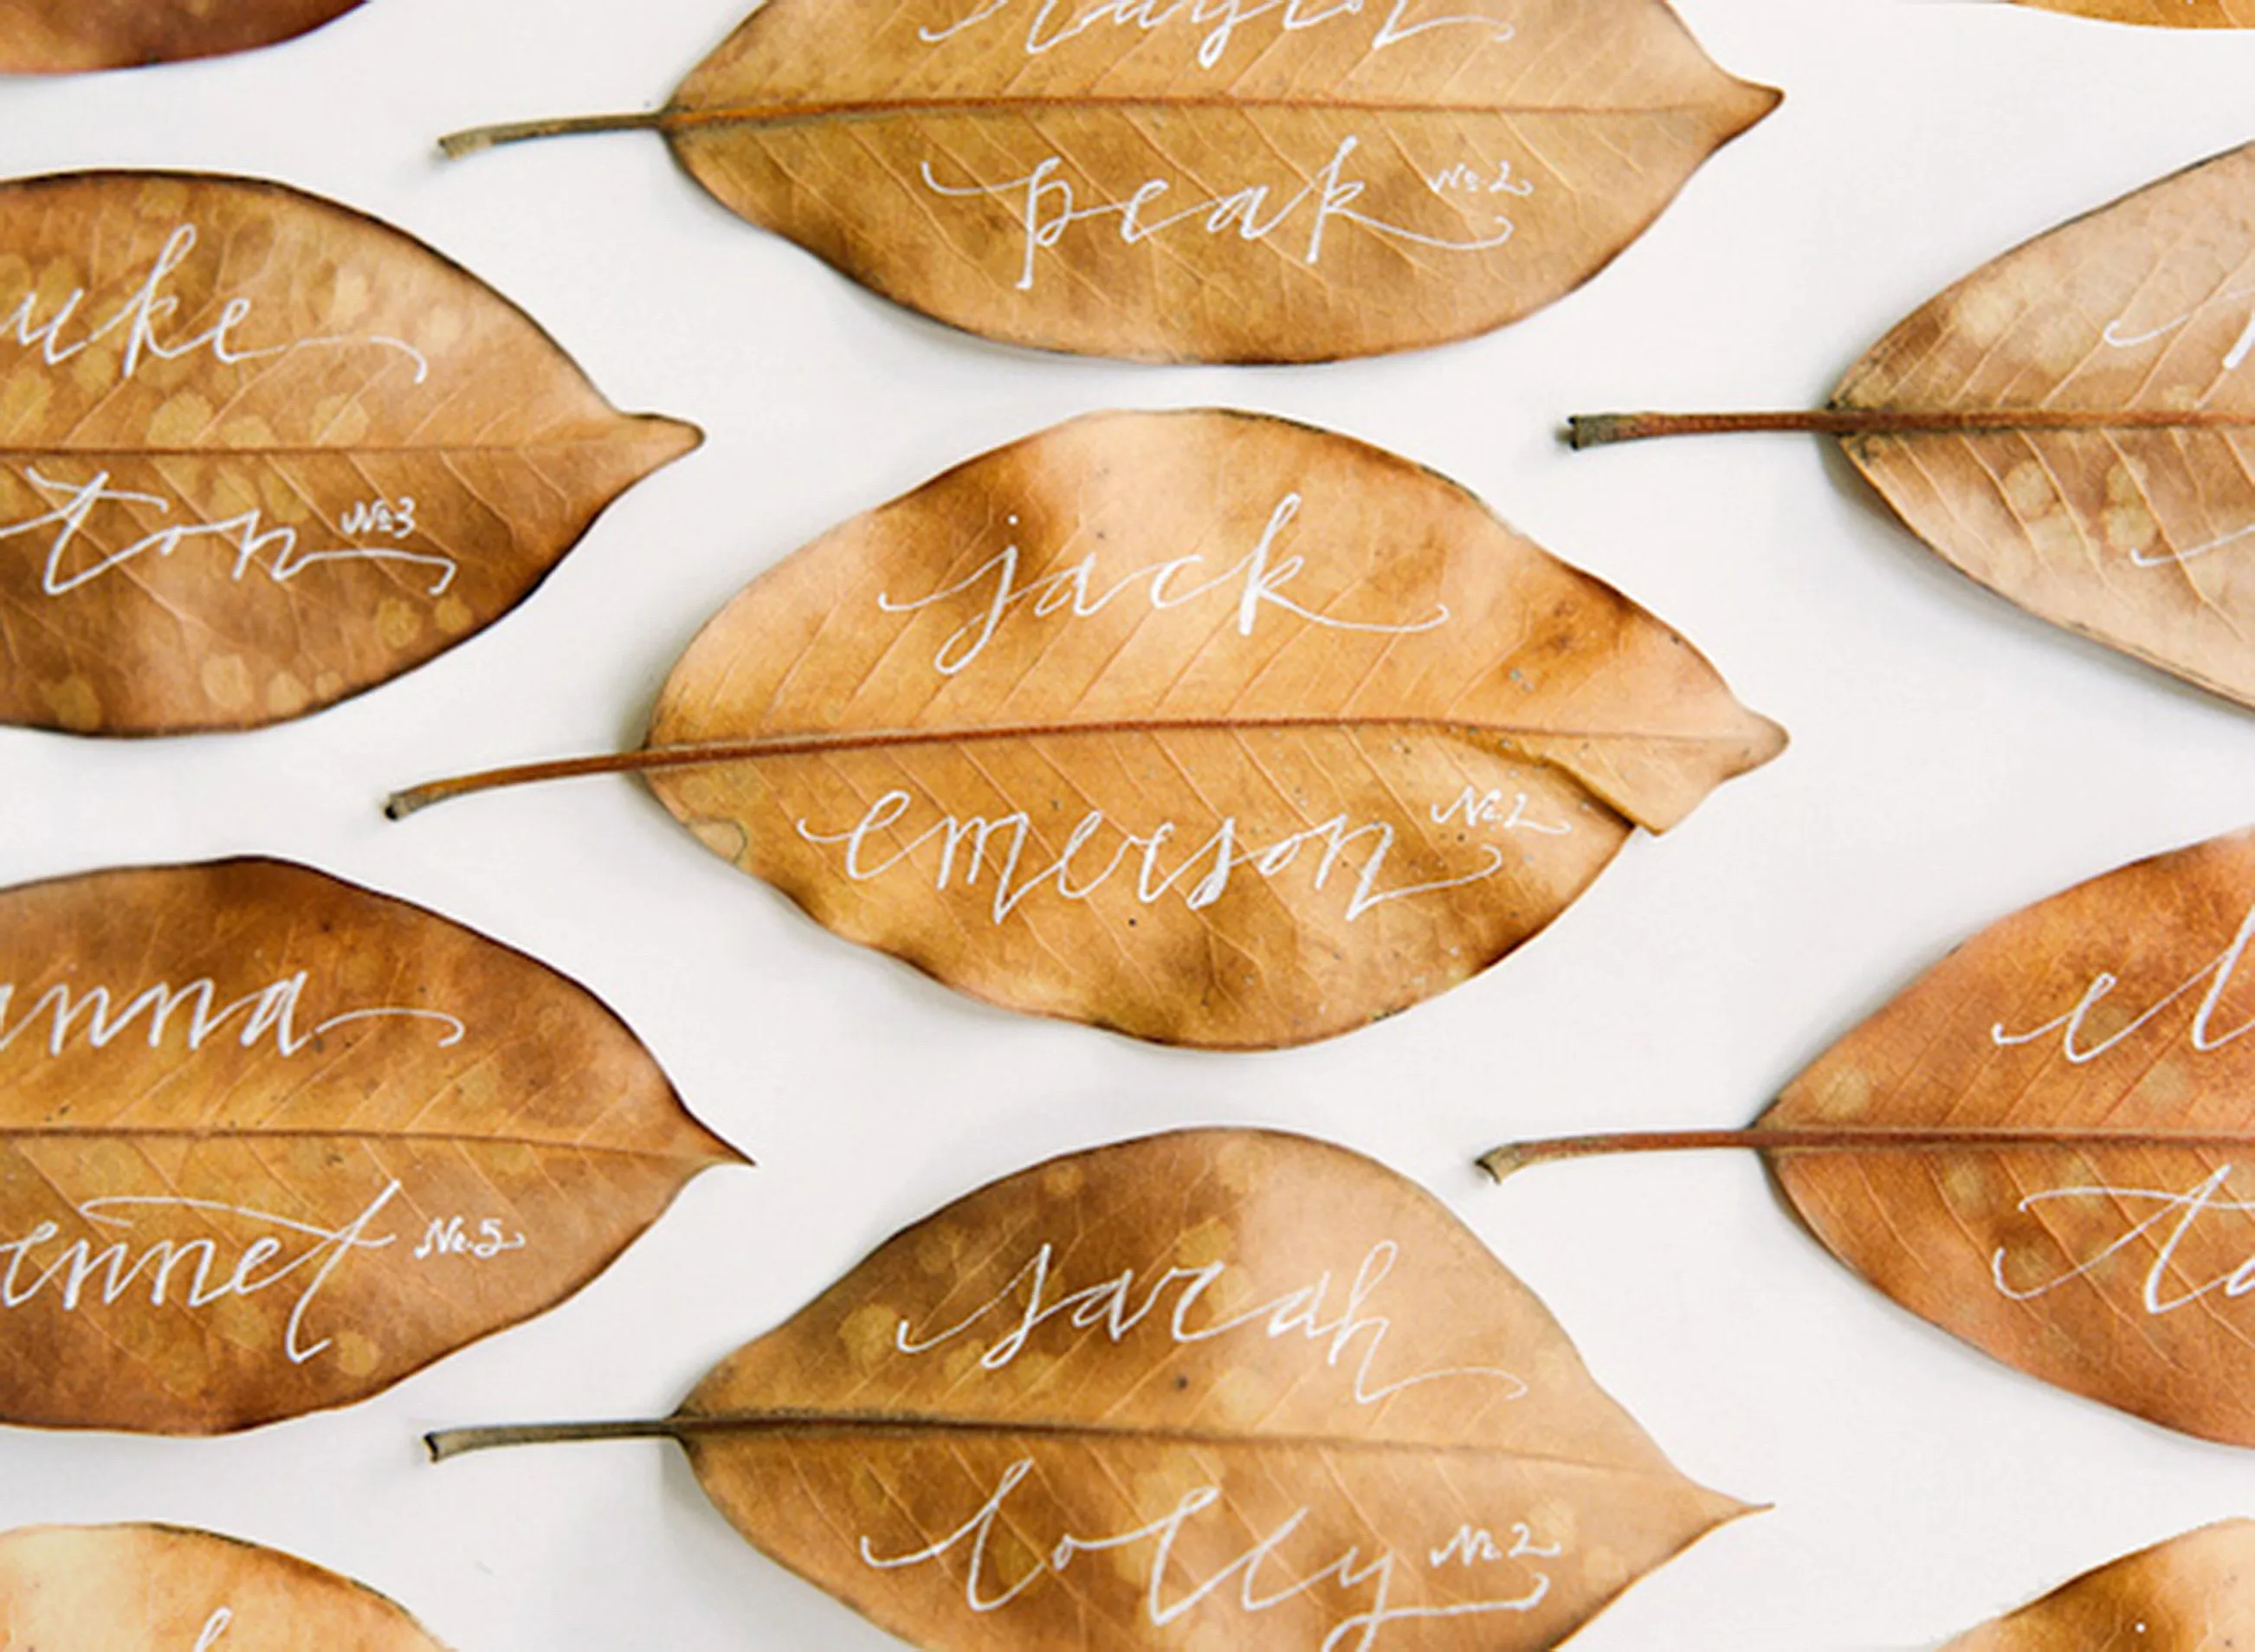 taylor
peak No.2
uke
ton No.3
jack
emerson No.2
anna
ennet No.5
el
ta
sarah
lolly No.2